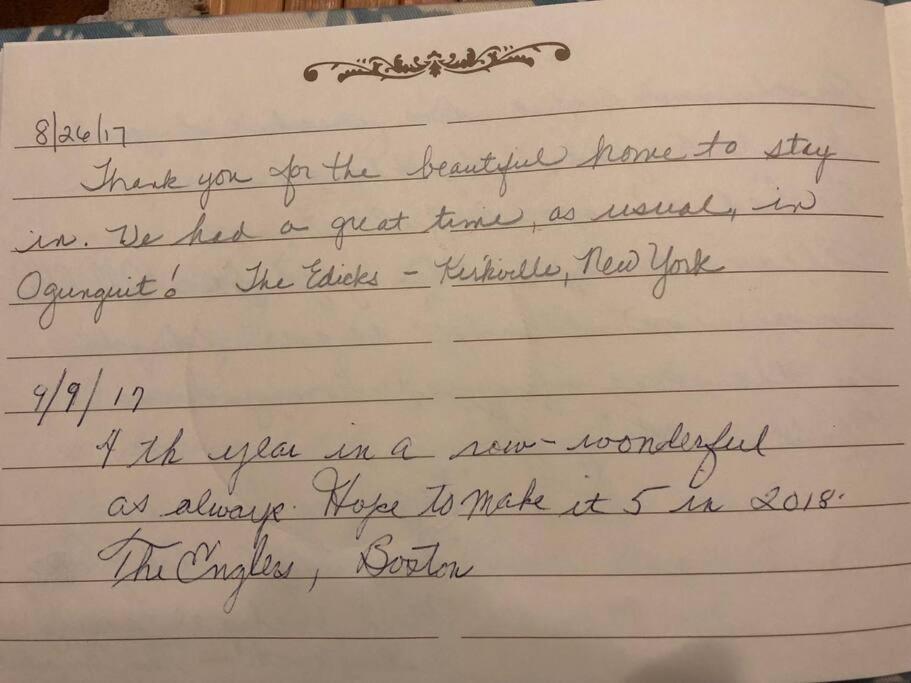 8/26/17
Thank you for the beautiful home to stay
in. We had a great time, as usual, in
Ogunquit! The Edicks - Kirkville, New York
9/9/17
4th year in a row - wonderful
as always. Hope to make it 5 in 2018.
The Englers, Boston